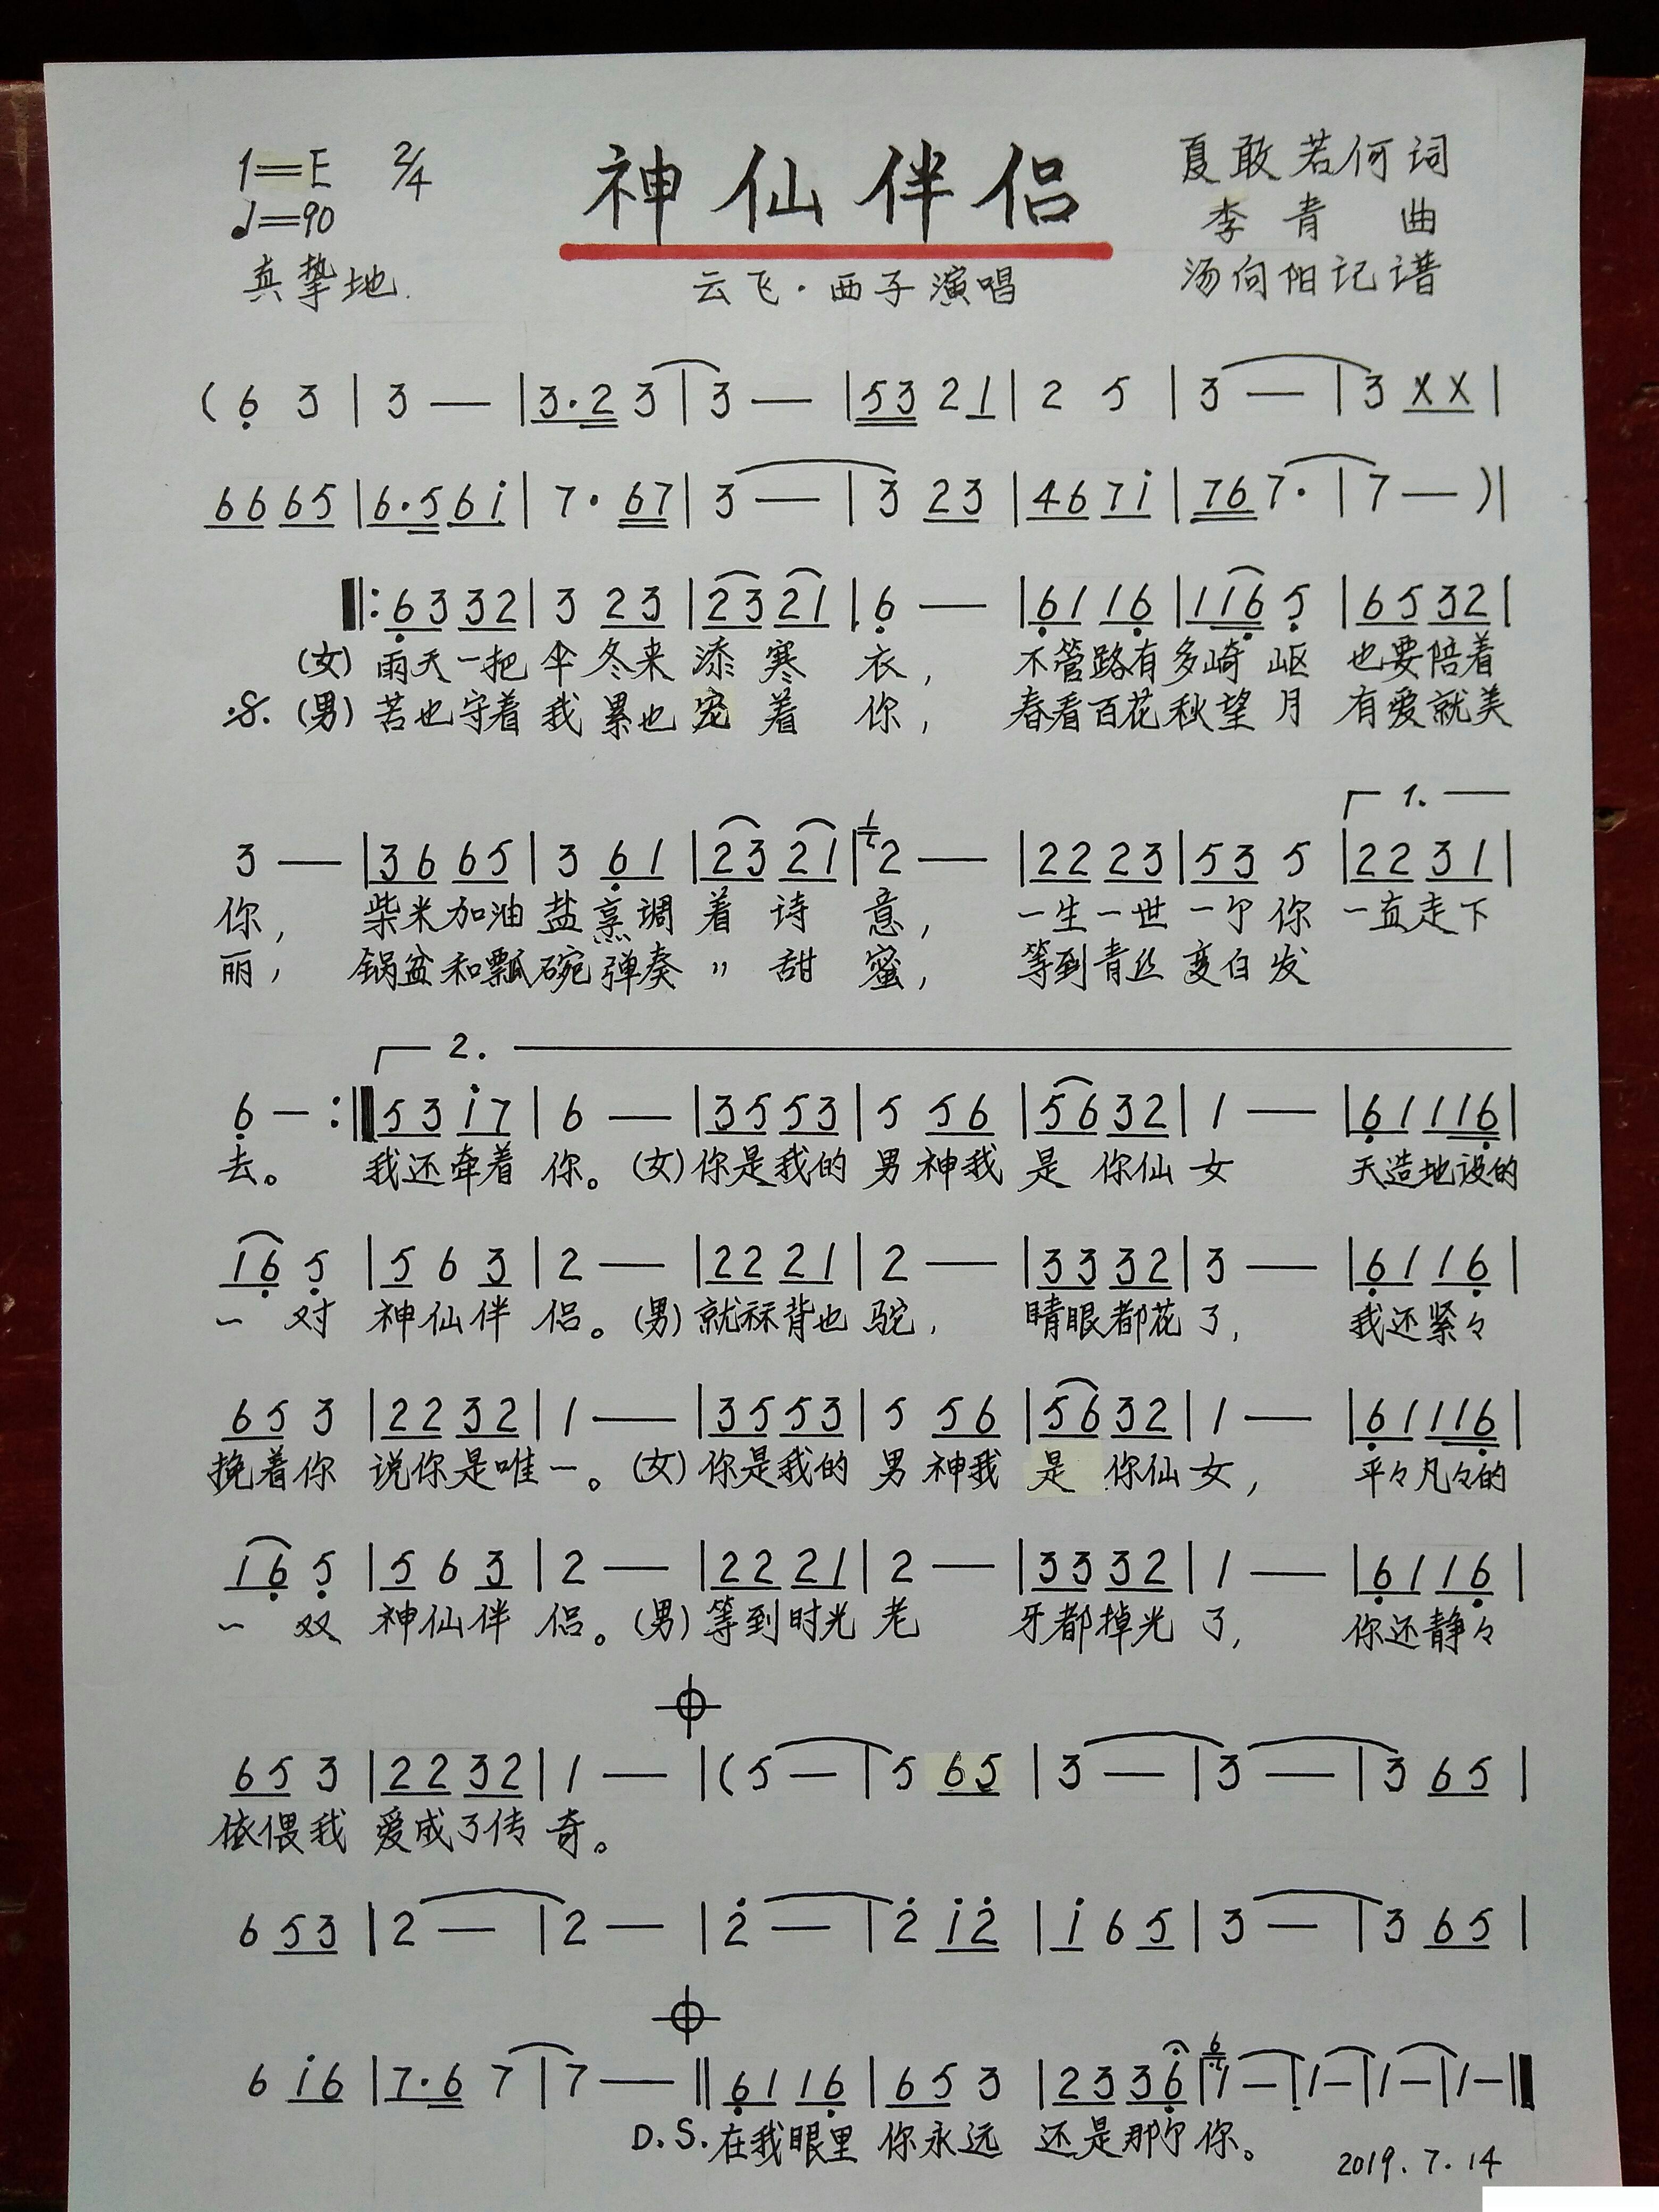 1=E 2/4 神仙伴侣 夏敢若何词
♩=90 李青 曲
真挚地. 云飞·西子演唱 汤向阳记谱
( 6̣ 3 | 3 — | 3·2 3 | 3 — | 53 2 1 | 2 5 | 3 — | 3 X X |
66 65 | 6·5 6i | 7· 67 | 3 — | 3 23 | 46 7i | 76 7· | 7 — ) |
‖: 6̣3 32 | 3 23 | 23 21 | 6̣ — | 6̣1 16̣ | 1 16̣ 5̣ | 65 32 |
(女) 雨天一把 伞 冬来 添 寒 衣, 不管路有多崎 岖 也要陪着
𝄋. (男) 苦也守着 我 累也 宠 着 你, 春看百花秋望 月 有爱就美
1.
3 — | 36 65 | 3 6̣1 | 23 21 | 1 2 — | 22 23 | 53 5 | 22 31 |
你, 柴米加油 盐 烹调 着 诗 意, 一生一世 一个 你 一直走下
丽, 锅盆和瓢碗 弹奏 〃 甜 蜜, 等到青丝 变白 发
2.
6̣ — :‖ 53 i7 | 6 — | 35 53 | 5 56 | 56 32 | 1 — | 6̣1 116̣ |
去。 我还牵着 你。(女)你是我的 男 神我 是 你仙 女 天造地设的
16̣ 5̣ | 5 6 3 | 2 — | 22 21 | 2 — | 33 32 | 3 — | 6̣1 16̣ |
一 对 神仙伴 侣。(男)就秝背也 驼, 睛眼都花 了, 我还紧々
65 3 | 22 32 | 1 — | 35 53 | 5 56 | 56 32 | 1 — | 6̣1 116̣ |
挽着你 说你是唯一。(女)你是我的 男 神我 是 你仙 女, 平々凡々的
16̣ 5̣ | 5 6 3 | 2 — | 22 21 | 2 — | 33 32 | 1 — | 6̣1 16̣ |
一 双 神仙伴 侣。(男)等到时光 老 牙都掉光 了, 你还静々
65 3 | 22 32 | 1 — | ( 5 — | 5 65 | 3 — | 3 — | 3 65 |
依偎我 爱成了传 奇。
6 53 | 2 — | 2 — | 2̇ — | 2̇ i2̇ | i 6 5 | 3 — | 3 65 |
6 i6 | 7·6 7 | 7 — ‖ 6̣1 16̣ | 65 3 | 23 36̣ | 6 1 — | 1 — | 1 — | 1 — ‖
D.S. 在我眼里 你永远 还是那个 你。
2019.7.14